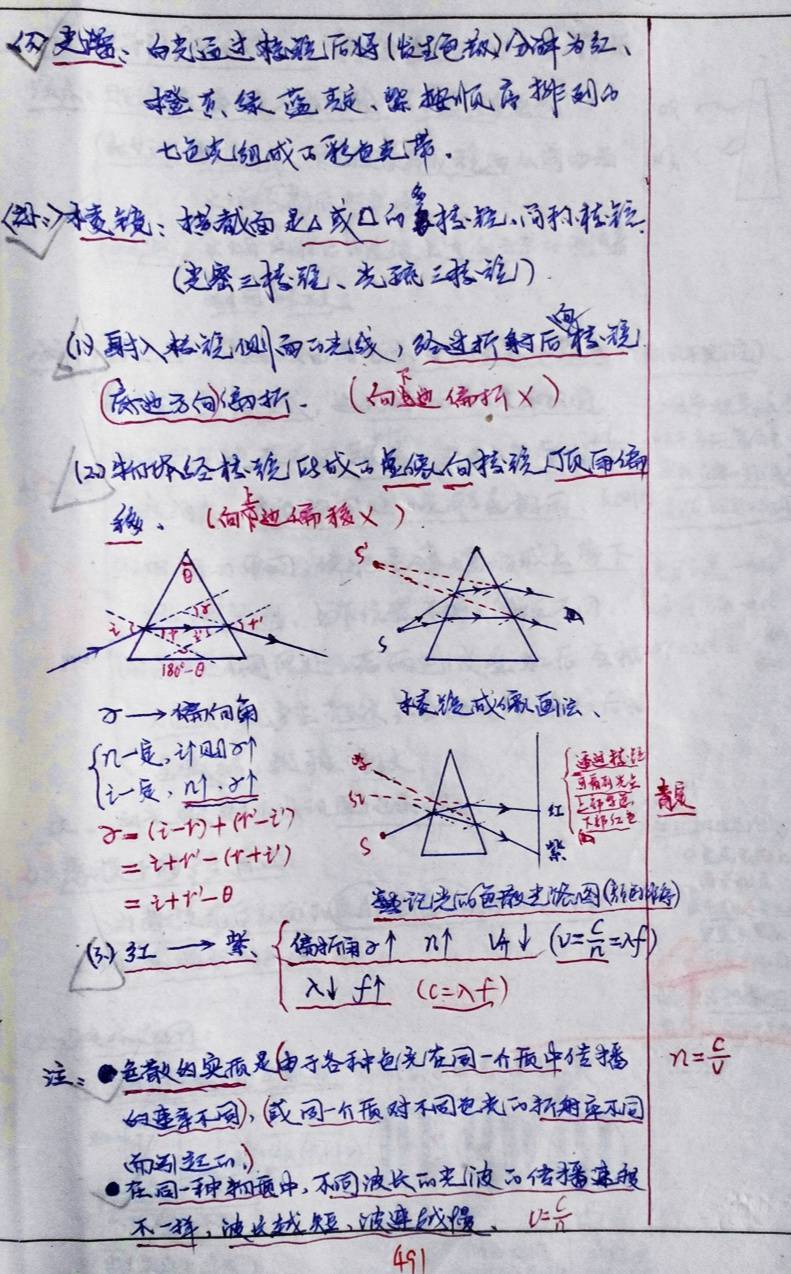 光谱: 白光通过棱镜后将(发生色散)分解为红、
橙、黄、绿、蓝、靛、紫按顺序排列的
七色光组成的彩色光带.
棱镜: 横截面是△或△的棱镜、简称棱镜.
(光密三棱镜、光疏三棱镜)
(1) 射入棱镜侧面的光线, 经过折射后向棱镜
(底边方向)偏折. (向下边偏折×)
(2) 物体经棱镜所成的虚像向棱镜顶角偏
移. (向上边偏移×)
θ
i r i' r' γ
180°-θ
S'
S
γ → 偏向角
棱镜成像画法、
n一定, i↑ γ↑
i一定, n↑, γ↑
γ = (i-r)+(r'-i')
= i+r'-(r+i')
= i+r'-θ
紫
红
S
红
紫
通过棱镜
可看到光点
上部紫色
下部红色
光的色散光路图
(3) 红 → 紫、 偏折角γ↑ n↑ V介↓ (v=c/n=λf)
λ↓ f↑ (c=λf)
注: ●色散的实质是(由于各种色光在同一介质中传播
的速率不同), (或同一介质对不同色光的折射率不同
而引起的.)
n=c/v
●在同一种物质中, 不同波长的光波的传播速度
不一样, 波长越短、波速越慢、 v=c/n
491